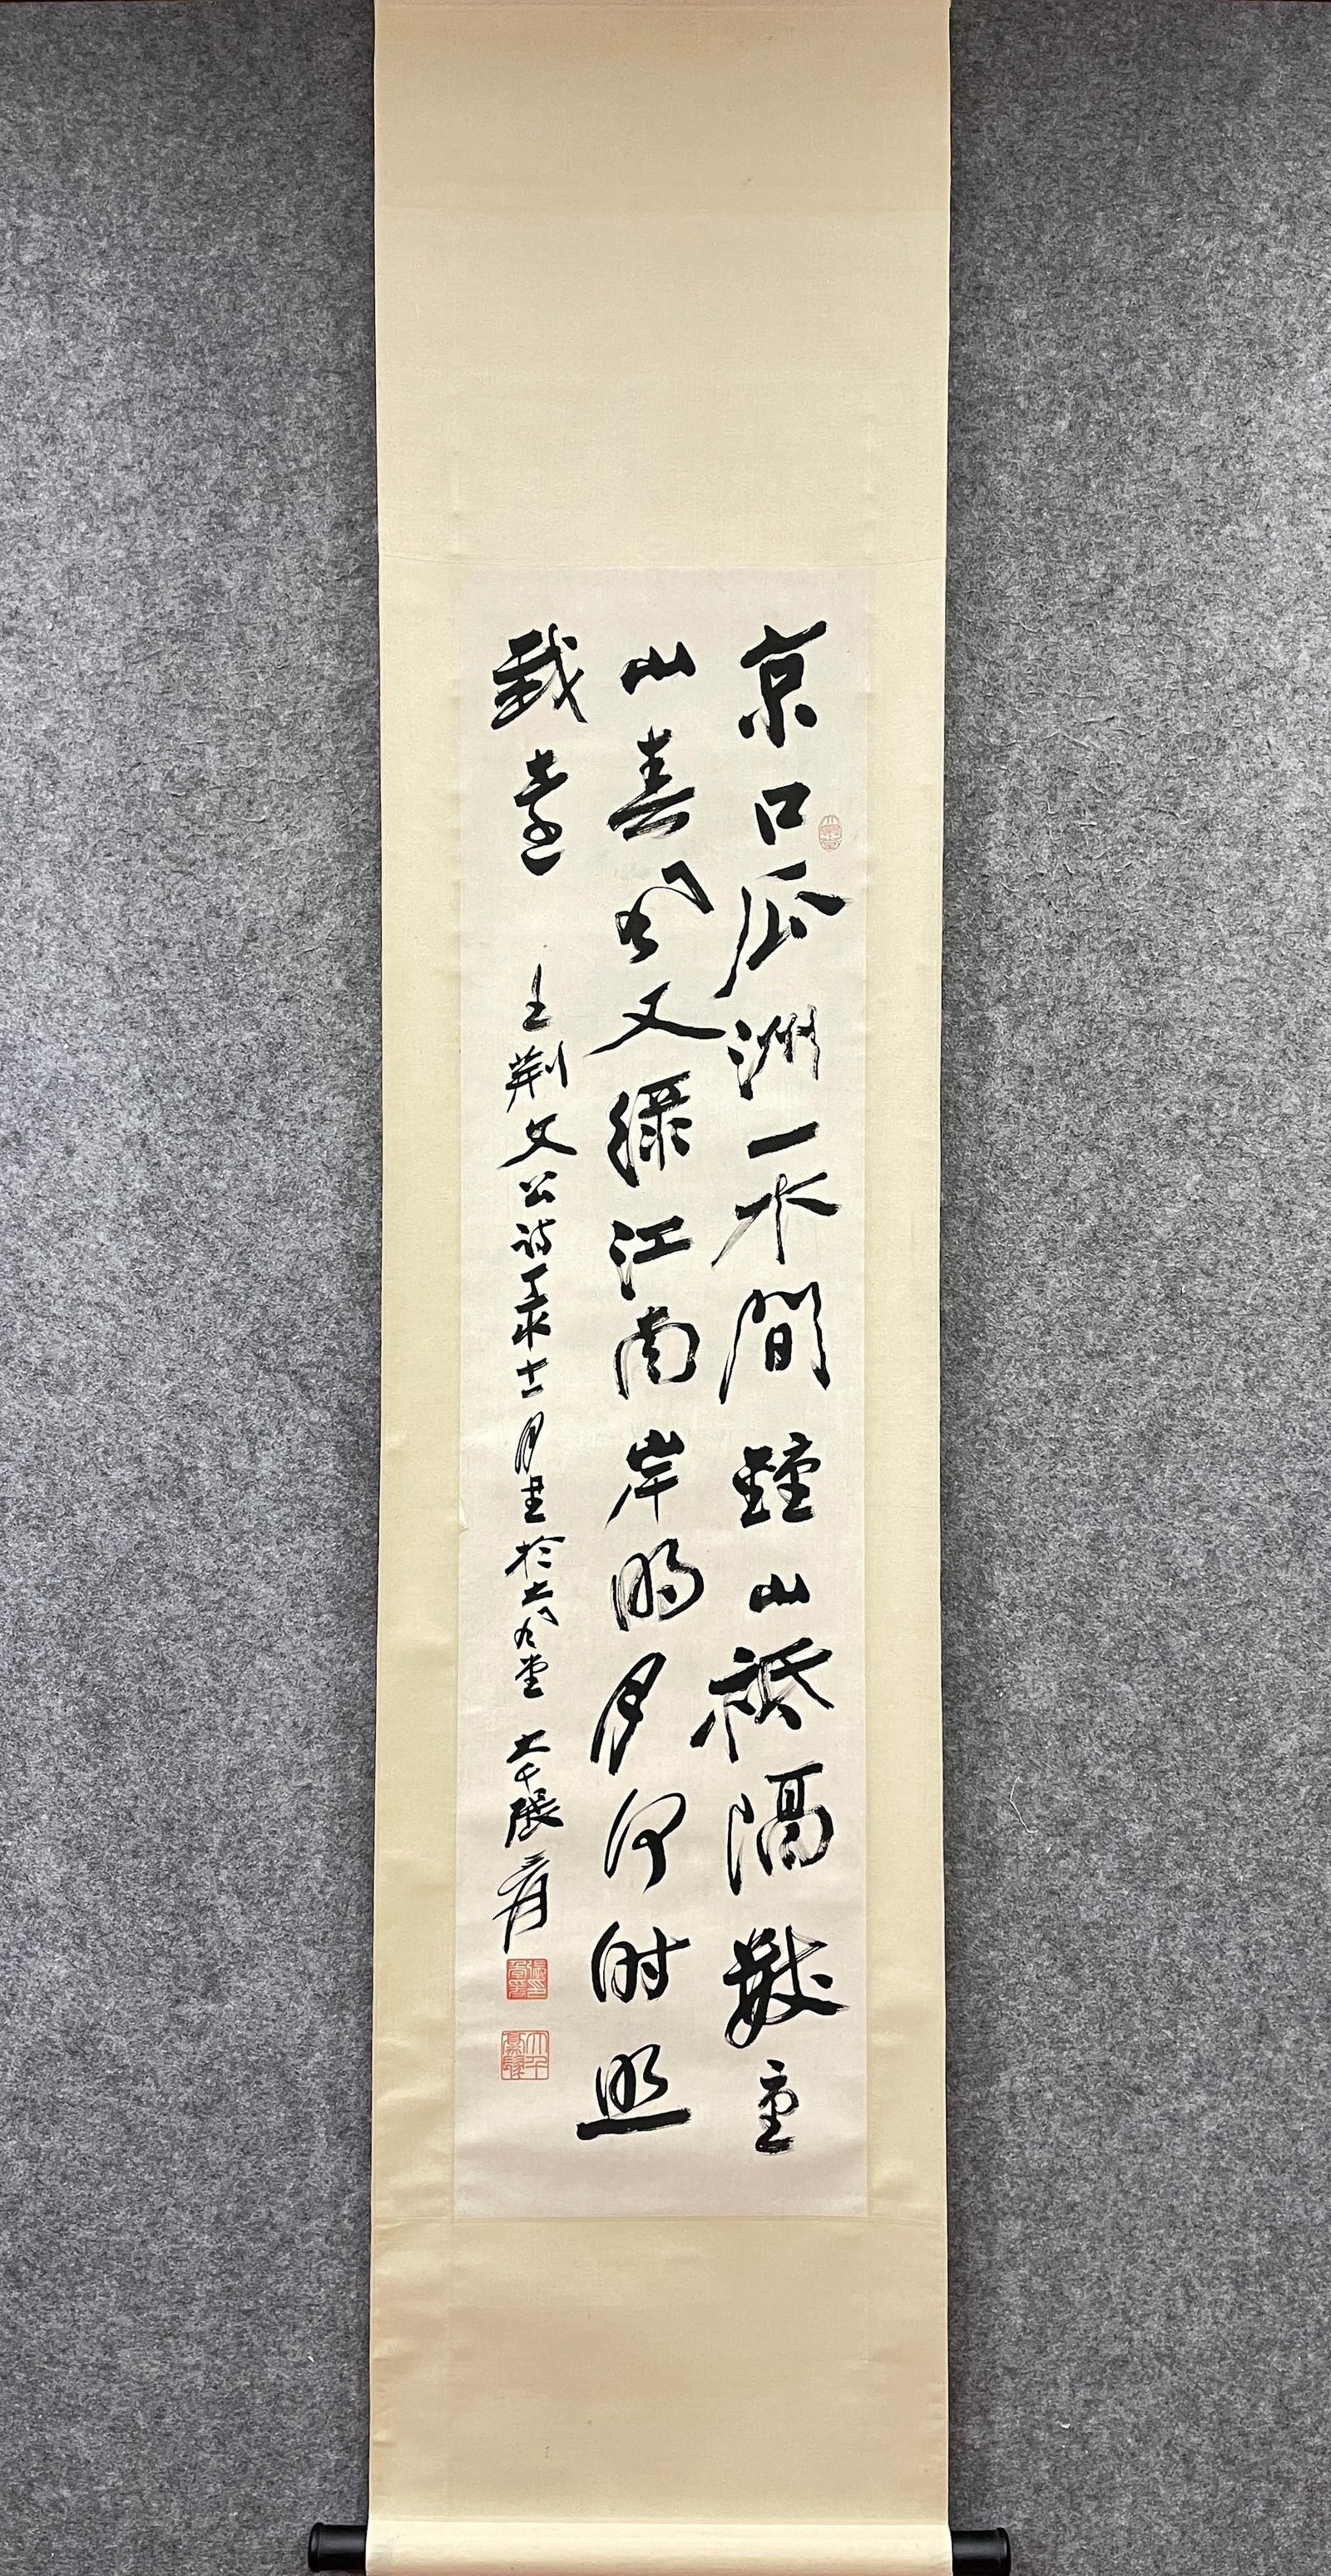 京口瓜洲一水間鍾山祗隔數重
山春風又綠江南岸明月何時照
我還
王荆文公詩丁未十二月書於大風堂 大千張爰
張爰
大千